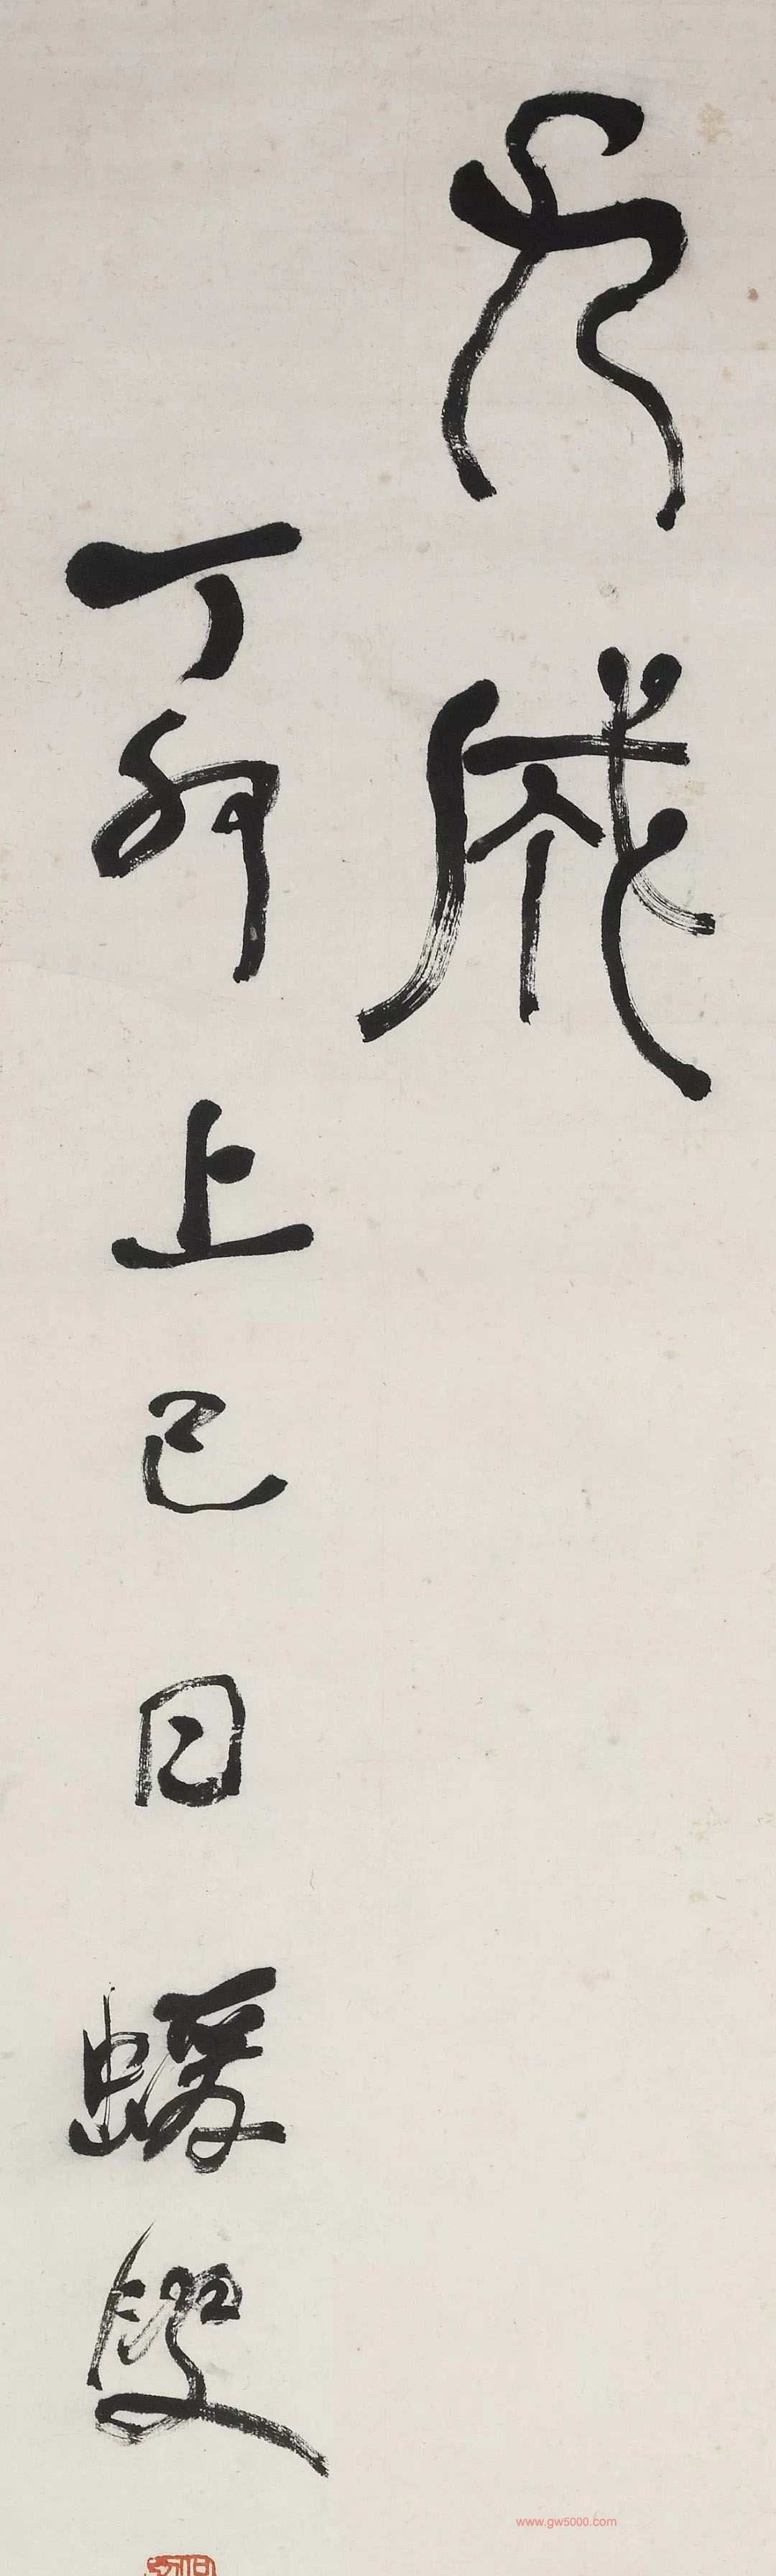 成
丁卯上巳日蝯叟
www.gw5000.com